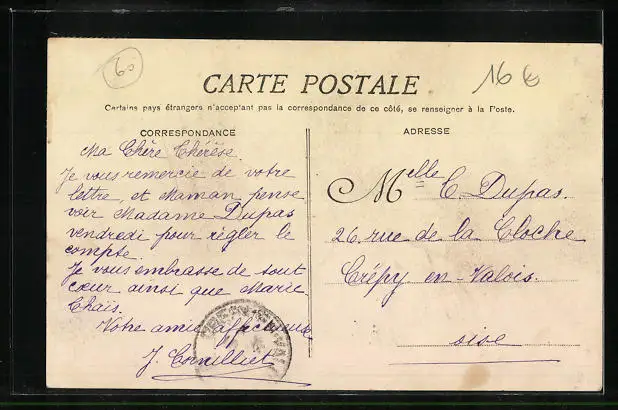 60
16 €
CARTE POSTALE
Certains pays étrangers n'acceptant pas la correspondance de ce côté, se renseigner à la Poste.
CORRESPONDANCE
Ma Chère Thérèse.
Je vous remercie de votre
lettre, et Maman pense
voir Madame Dupas
vendredi pour régler le
compte.
Je vous embrasse de tout
cœur ainsi que Marie
Thaïs.
Votre amie affectueuse
J. Cornilliet
ADRESSE
Melle C. Dupas.
26. rue de la Cloche
Crépy-en-Valois.
oise